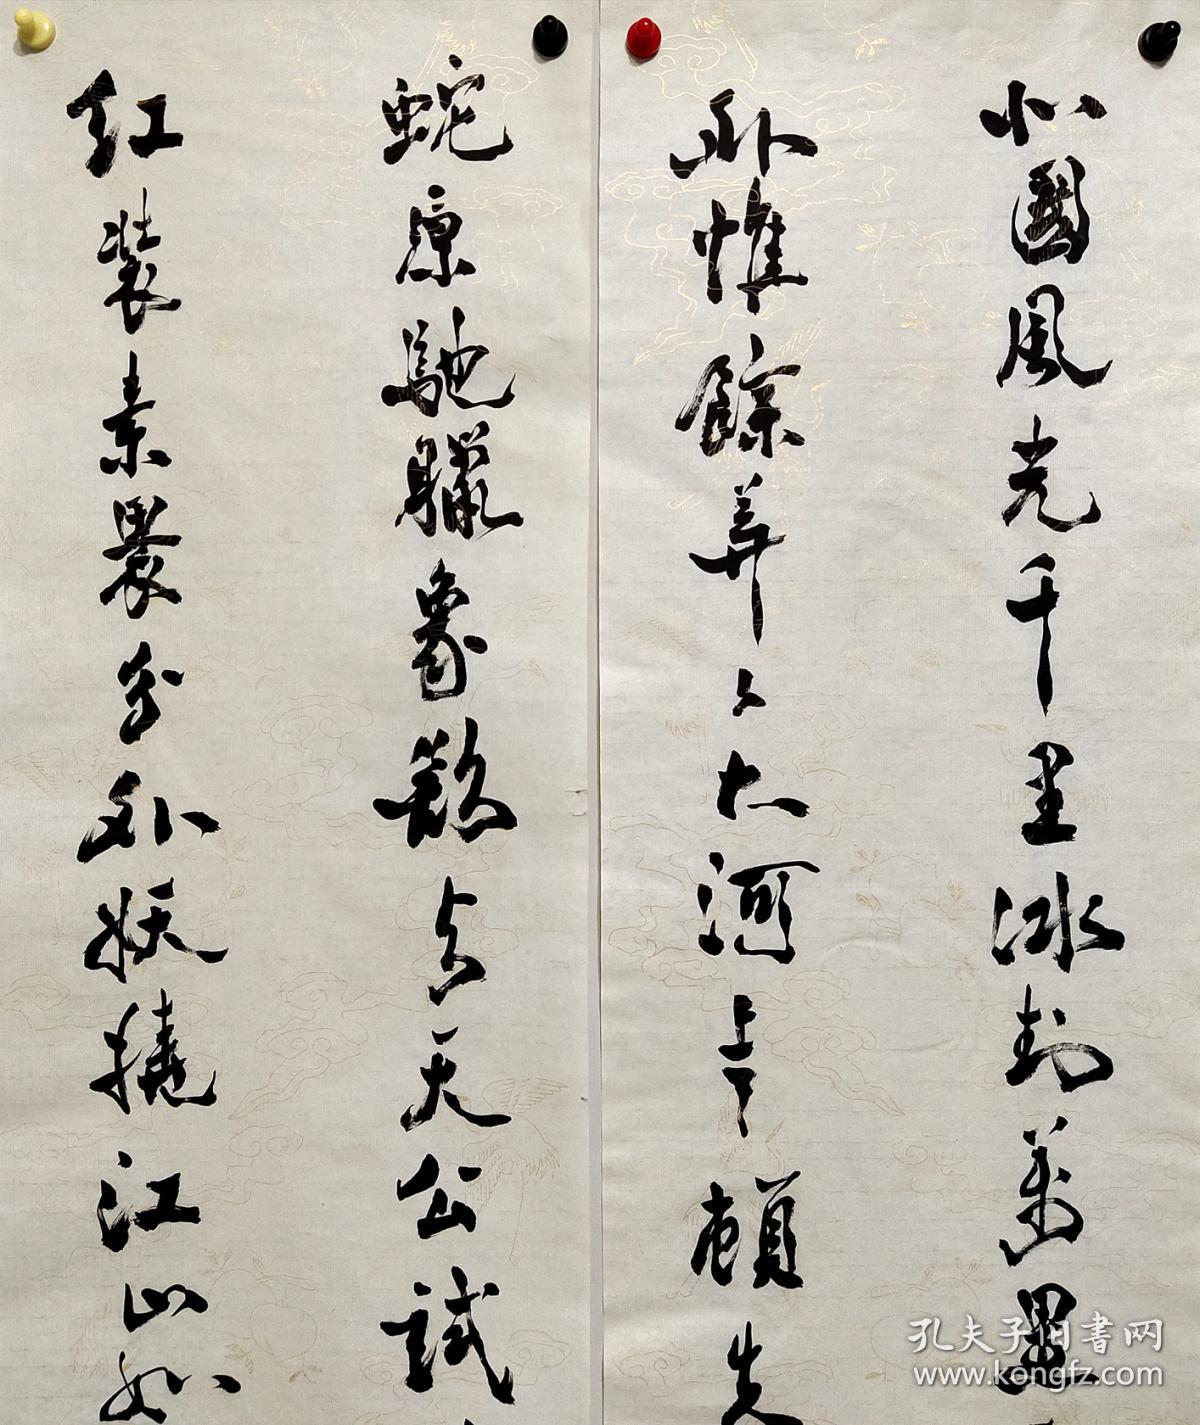 北國風光千里冰封萬里
外惟餘莽々大河上下頓失
蛇原馳臘象欲与天公試
紅裝素裹分外妖撓江山如
孔夫子旧書网
www.kongfz.com